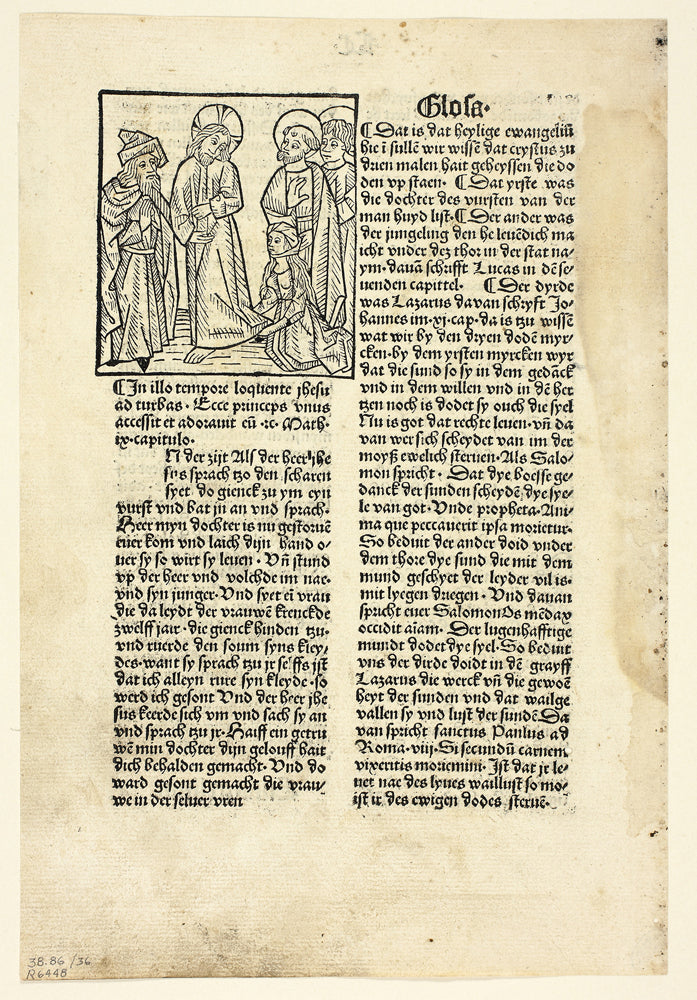 ¶ In illo tempore loquente jhesu
ad turbas · Ecce princeps vnus
accessit et adorauit eū ·rc· Math·
ix·capitulo·
N der zijt Als der heer jhe
sus sprach tzo den scharen
syet do gienck zu ym eyn
vurst vnd bat in an vnd sprach·
Heer myn dochter is nu gestoruē
euer kom vnd laich dijn hand o-
uer sy so wirt sy leuen · Vn̄ stund
vp der heer vnd volchde im nae·
vnd syn junger· Vnd syet ei vrau
die da leydt der vrauwē krenckde
zwelff jair · die gienck hinden tzu·
vnd ruerde den soum syns kley-
des· want sy sprach tzu jr selffs jst
dat ich alleyn rure syn kleyde · so
werd ich gesont Vnd der heer jhe
sus keerde sich vm vnd sach sy an
vnd sprach tzu jr· Haiff ein getru
wē min dochter dijn gelouff hait
dich behalden gemacht · Vnd do
ward gesont gemacht die vrau-
we in der seluer vren
Glosa·
¶ Dat is dat heylige ewangeliū
hie ī sullē wir wissē dat crystus zu
drien malen hait geheyssen die do
den vp staen· ¶ Dat yrste was
die dochter des vursten van der
man huyd list· ¶ Der ander was
der jungeling den he leuēdich ma
icht vnder dez thor in der stat na-
ym· dauā schrifft Lucas in dē se-
uenden capittel· ¶ Der dyrde
was Lazarus davan schryft Jo-
hannes im·xj·cap·da is tzu wissē
wat wir by den dryen dodē myr-
cken·by dem yrsten myrcken wyr
dat die sund so sy in dem gedāck
vnd in dem willen vnd in dē her
tzen noch is dodet sy ouch die syel
Nu is got dat rechte leuen· vn̄ da
van wer sich scheydet van im der
moyß ewelich steruen· Als Salo-
mon spricht · Dat dye boesse ge-
danck der sunden scheydē dye sye-
le van got· Vnde propheta· Ani-
ma que peccauerit ipsa morietur·
So beduit der ander doid vnder
dem thore dye sund die mit dem
mund geschyet der leyder vil is·
mit lyegen driegen · Vnd dauan
spricht euer Salomon Os mēdax
occidit aīam· Der lugenhafftige
mundt dodet dye syel· So beduit
vns der dirde doidt in dē grayff
Lazarus die werck vn̄ die gewoē
heyt der sunden vnd dat wailge
vallen sy vnd lust der sundē Da
van spricht sanctus Paulus ad
Roma·viij· Si secundū carnem
vixeritis moriemini· Jst dat jr le-
uet nae des lyues waillust so mo-
ist ir des ewigen dodes steruē·
38.86/36
R6448